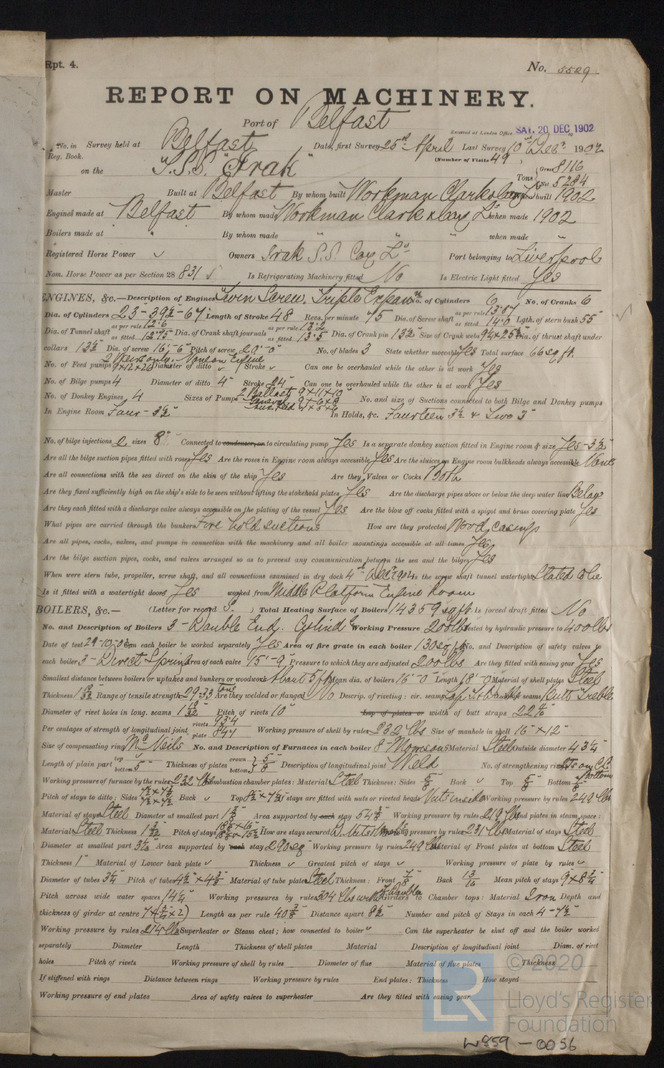 Rpt. 4.
No. 5529
REPORT ON MACHINERY.
Port of Belfast
Received at London Office SAT. 20 DEC 1902
No. in Survey held at Belfast Date, first Survey 25th April Last Survey 10th Decr 1902
Reg. Book. (Number of Visits 49)
on the T.S.S. "Irak" Tons Gross 8116
Net 5284
Master Built at Belfast By whom built Workman Clark & Coy Ld When built 1902
Engines made at Belfast By whom made Workman Clark & Coy Ld when made 1902
Boilers made at " By whom made " when made "
Registered Horse Power Owners Irak S.S. Coy Ld Port belonging to Liverpool
Nom. Horse Power as per Section 28 831 Is Refrigerating Machinery fitted No Is Electric Light fitted Yes
ENGINES, &c.—Description of Engines Twin Screw, Triple Expansn No. of Cylinders 6 No. of Cranks 6
Dia. of Cylinders Length of Stroke 48 Revs. per minute 75 Dia. of Screw shaft as per rule as fitted Lgth. of stern bush 55"
Dia. of Tunnel shaft as per rule as fitted Dia. of Crank shaft journals as per rule as fitted 13.5 Dia. of Crank pin 13½ Size of Crank webs Dia. of thrust shaft under
collars 13½ Dia. of screw 16'-6" Pitch of screw 20'-0" No. of blades 3 State whether moveable Yes Total surface 66 sq ft.
No. of Feed pumps Diameter of ditto Stroke Can one be overhauled while the other is at work Yes
No. of Bilge pumps 4 Diameter of ditto 4" Stroke 24" Can one be overhauled while the other is at work Yes
No. of Donkey Engines 4 Sizes of Pumps No. and size of Suctions connected to both Bilge and Donkey pumps
In Engine Room Four - 3½" In Holds, &c. Fourteen 3½ & Two 3"
No. of bilge injections 2 sizes 8" Connected to condenser, or to circulating pump Yes Is a separate donkey suction fitted in Engine room & size Yes - 3½
Are all the bilge suction pipes fitted with roses Yes Are the roses in Engine room always accessible Yes Are the sluices on Engine room bulkheads always accessible None
Are all connections with the sea direct on the skin of the ship Yes Are they Valves or Cocks Both
Are they fixed sufficiently high on the ship's side to be seen without lifting the stokehold plates Yes Are the discharge pipes above or below the deep water line Below
Are they each fitted with a discharge valve always accessible on the plating of the vessel Yes Are the blow off cocks fitted with a spigot and brass covering plate Yes
What pipes are carried through the bunkers Fore hold suctions How are they protected Wood casings
Are all pipes, cocks, valves, and pumps in connection with the machinery and all boiler mountings accessible at all times Yes
Are the bilge suction pipes, cocks, and valves arranged so as to prevent any communication between the sea and the bilges Yes
When were stern tube, propeller, screw shaft, and all connections examined in dry dock Is the screw shaft tunnel watertight Stated to be
Is it fitted with a watertight door Yes worked from Middle Platform Engine Room
BOILERS, &c.— (Letter for record S) Total Heating Surface of Boilers 14359 sq ft. Is forced draft fitted No
No. and Description of Boilers 3 - Double End. Cylindl Working Pressure 200 lbs Tested by hydraulic pressure to 400 lbs
Date of test 29-10-02 Can each boiler be worked separately Yes Area of fire grate in each boiler 130 sq ft No. and Description of safety valves to
each boiler 3 - Direct Spring Area of each valve Pressure to which they are adjusted 200 lbs Are they fitted with easing gear Yes
Smallest distance between boilers or uptakes and bunkers or woodwork About 5 ft Mean dia. of boilers 16'-0" Length 18'-0" Material of shell plates Steel
Thickness Range of tensile strength 29-33 tons Are they welded or flanged No Descrip. of riveting: cir. seams long seams Butt Treble
Diameter of rivet holes in long. seams Pitch of rivets 10" Lap of plates or width of butt straps
Per centages of strength of longitudinal joint rivets plate Working pressure of shell by rules 232 lbs Size of manhole in shell 16" x 12"
Size of compensating ring McNeils No. and Description of Furnaces in each boiler 8 - Morisons Material Steel Outside diameter
Length of plain part top bottom Thickness of plates crown bottom Description of longitudinal joint Weld No. of strengthening rings
Working pressure of furnace by the rules 230 lbs Combustion chamber plates: Material Steel Thickness: Sides Back Top Bottom
Pitch of stays to ditto: Sides Back Top If stays are fitted with nuts or riveted heads Nuts inside Working pressure by rules
Material of stays Steel Diameter at smallest part Area supported by each stay Working pressure by rules End plates in steam space:
Material Steel Thickness Pitch of stays How are stays secured Working pressure by rules Material of stays Steel
Diameter at smallest part Area supported by each stay Working pressure by rules Material of Front plates at bottom Steel
Thickness 1" Material of Lower back plate Thickness Greatest pitch of stays Working pressure of plate by rules
Diameter of tubes 3¼" Pitch of tubes Material of tube plates Steel Thickness: Front Back Mean pitch of stays
Pitch across wide water spaces 14¼" Working pressures by rules Girders to Chamber tops: Material Iron Depth and
thickness of girder at centre Length as per rule Distance apart 8½" Number and pitch of Stays in each 4 - 7½"
Working pressure by rules Superheater or Steam chest; how connected to boiler Can the superheater be shut off and the boiler worked
separately Diameter Length Thickness of shell plates Material Description of longitudinal joint Diam. of rivet
holes Pitch of rivets Working pressure of shell by rules Diameter of flue Material of flue plates Thickness
If stiffened with rings Distance between rings Working pressure by rules End plates: Thickness How stayed
Working pressure of end plates Area of safety valves to superheater Are they fitted with easing gear
© 2020
Lloyd's Register
Foundation
W859-0056